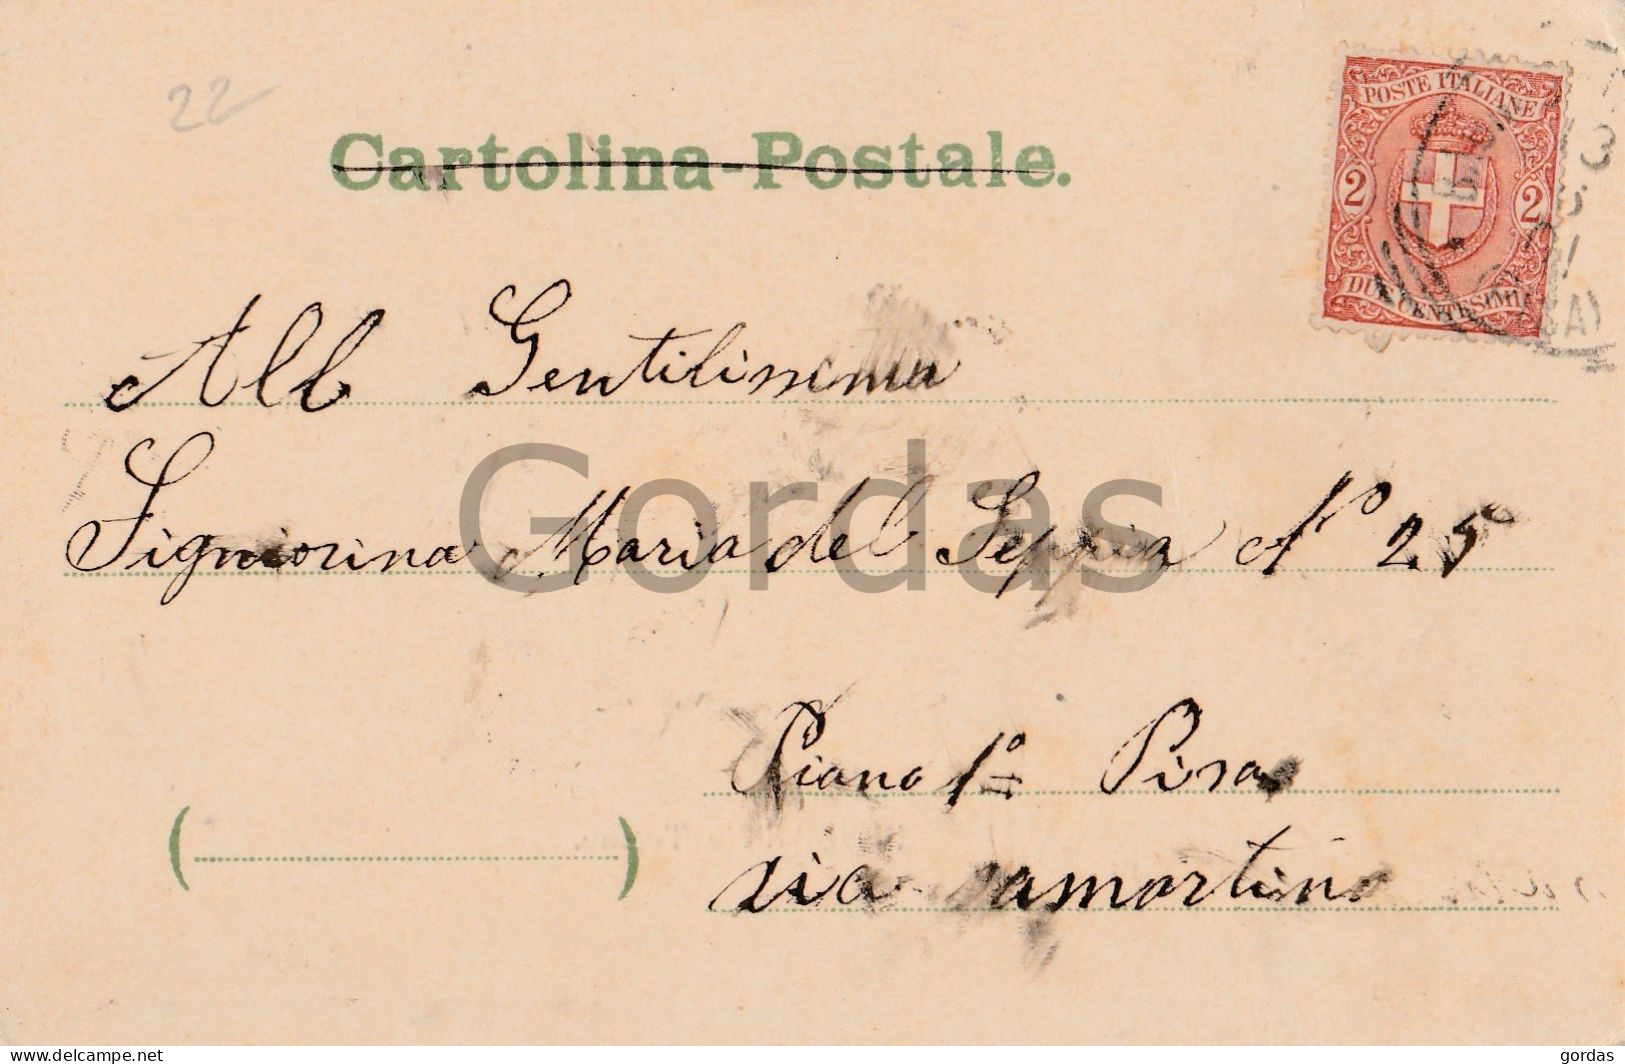 22
Cartolina-Postale.
POSTE ITALIANE
2 2
DUE CENTESIMI
All Gentilissima
Signiorina Maria del Seppia N° 25
Gordas
Piano 1° Pisa
via samartino
delcampe.net
gordas